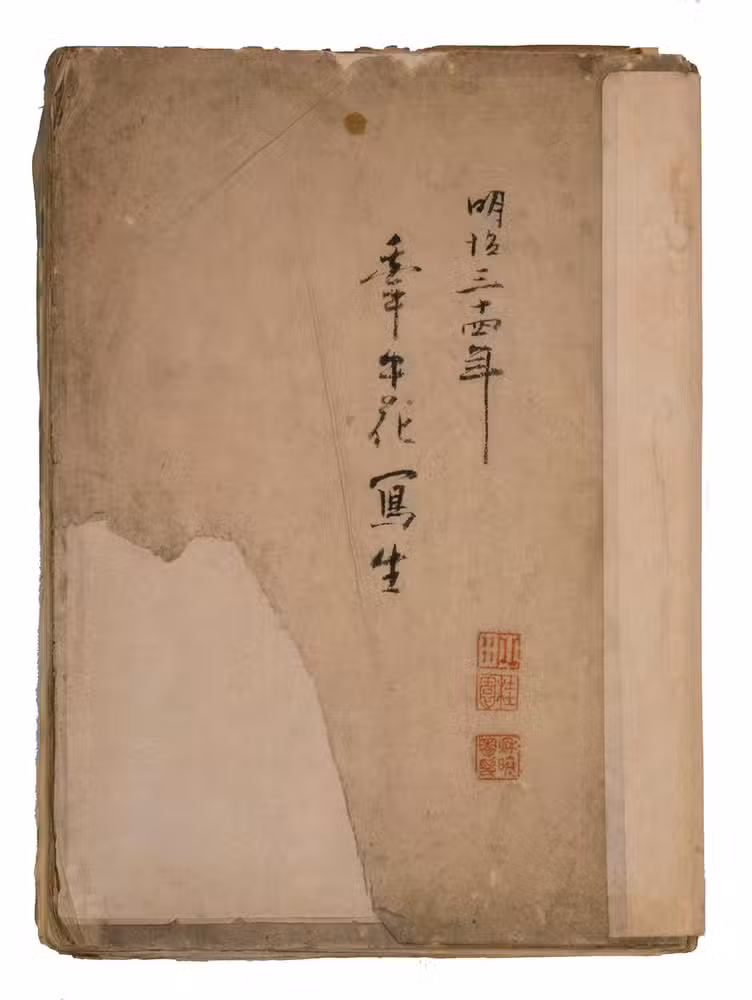 明治三十四年
牽牛花寫生